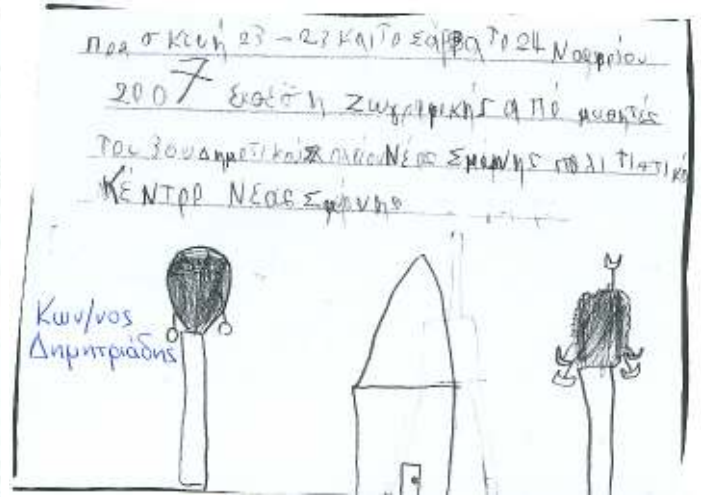 Παρασκευή 23 - 23 Και Το Σάββατο 24 Νοεμβρίου
2007 έκθεση Ζωγραφικής από μαθητές
Του 3ου Δημοτικού Σχολείου Νέας Σμύρνης πολιτιστικό
Κέντρο Νέας Σμύρνης
Κων/νος
Δημητριάδης